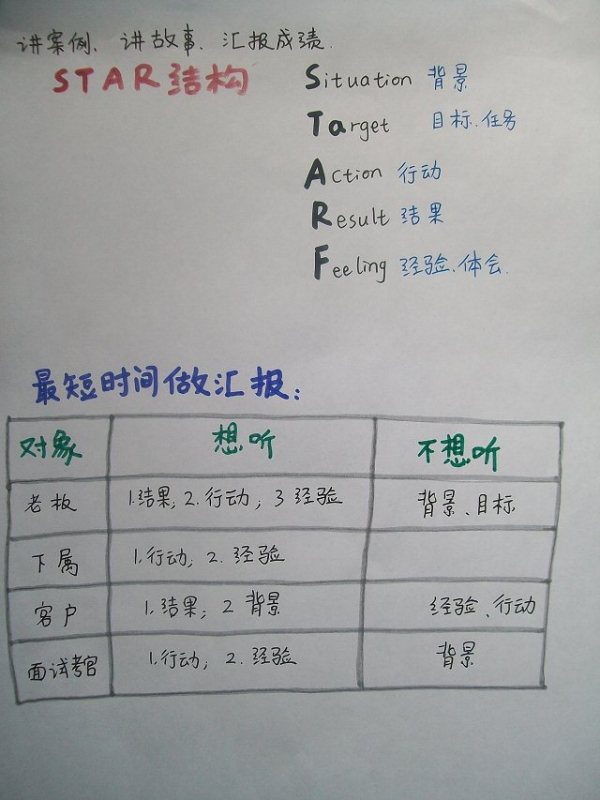 讲案例、讲故事、汇报成绩.
STAR结构
Situation 背景
Target 目标.任务
Action 行动
Result 结果
Feeling 经验、体会.
最短时间做汇报:
对象 想听 不想听
老板 1.结果; 2.行动; 3 经验 背景、目标
下属 1.行动; 2.经验
客户 1.结果; 2 背景 经验、行动
面试考官 1.行动; 2.经验 背景